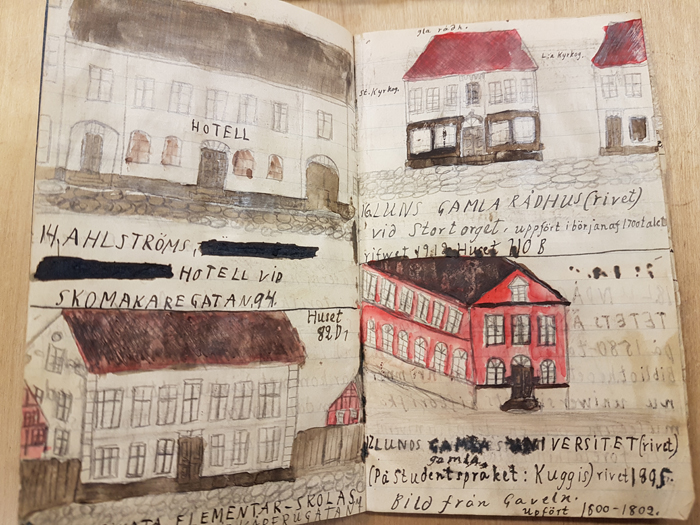 HOTELL
14, AHLSTRÖMS,
HOTELL VID
SKOMAKAREGATAN 94.
Huset
82D1
ELEMENTAR-SKOLAS
gla rådh.
St. Kyrkog.
L:a Kyrkog.
16. LUNS GAMLA RÅDHUS (rivet)
vid Stortorget, uppfört i början af 1700 talet
Huset 710 B
LUNDS GAMLA UNIVERSITET (rivet)
gamla
(På studentspråket: Kuggis) rivet 1895.
Bild från Gaveln.
uppfört 1800-1802.